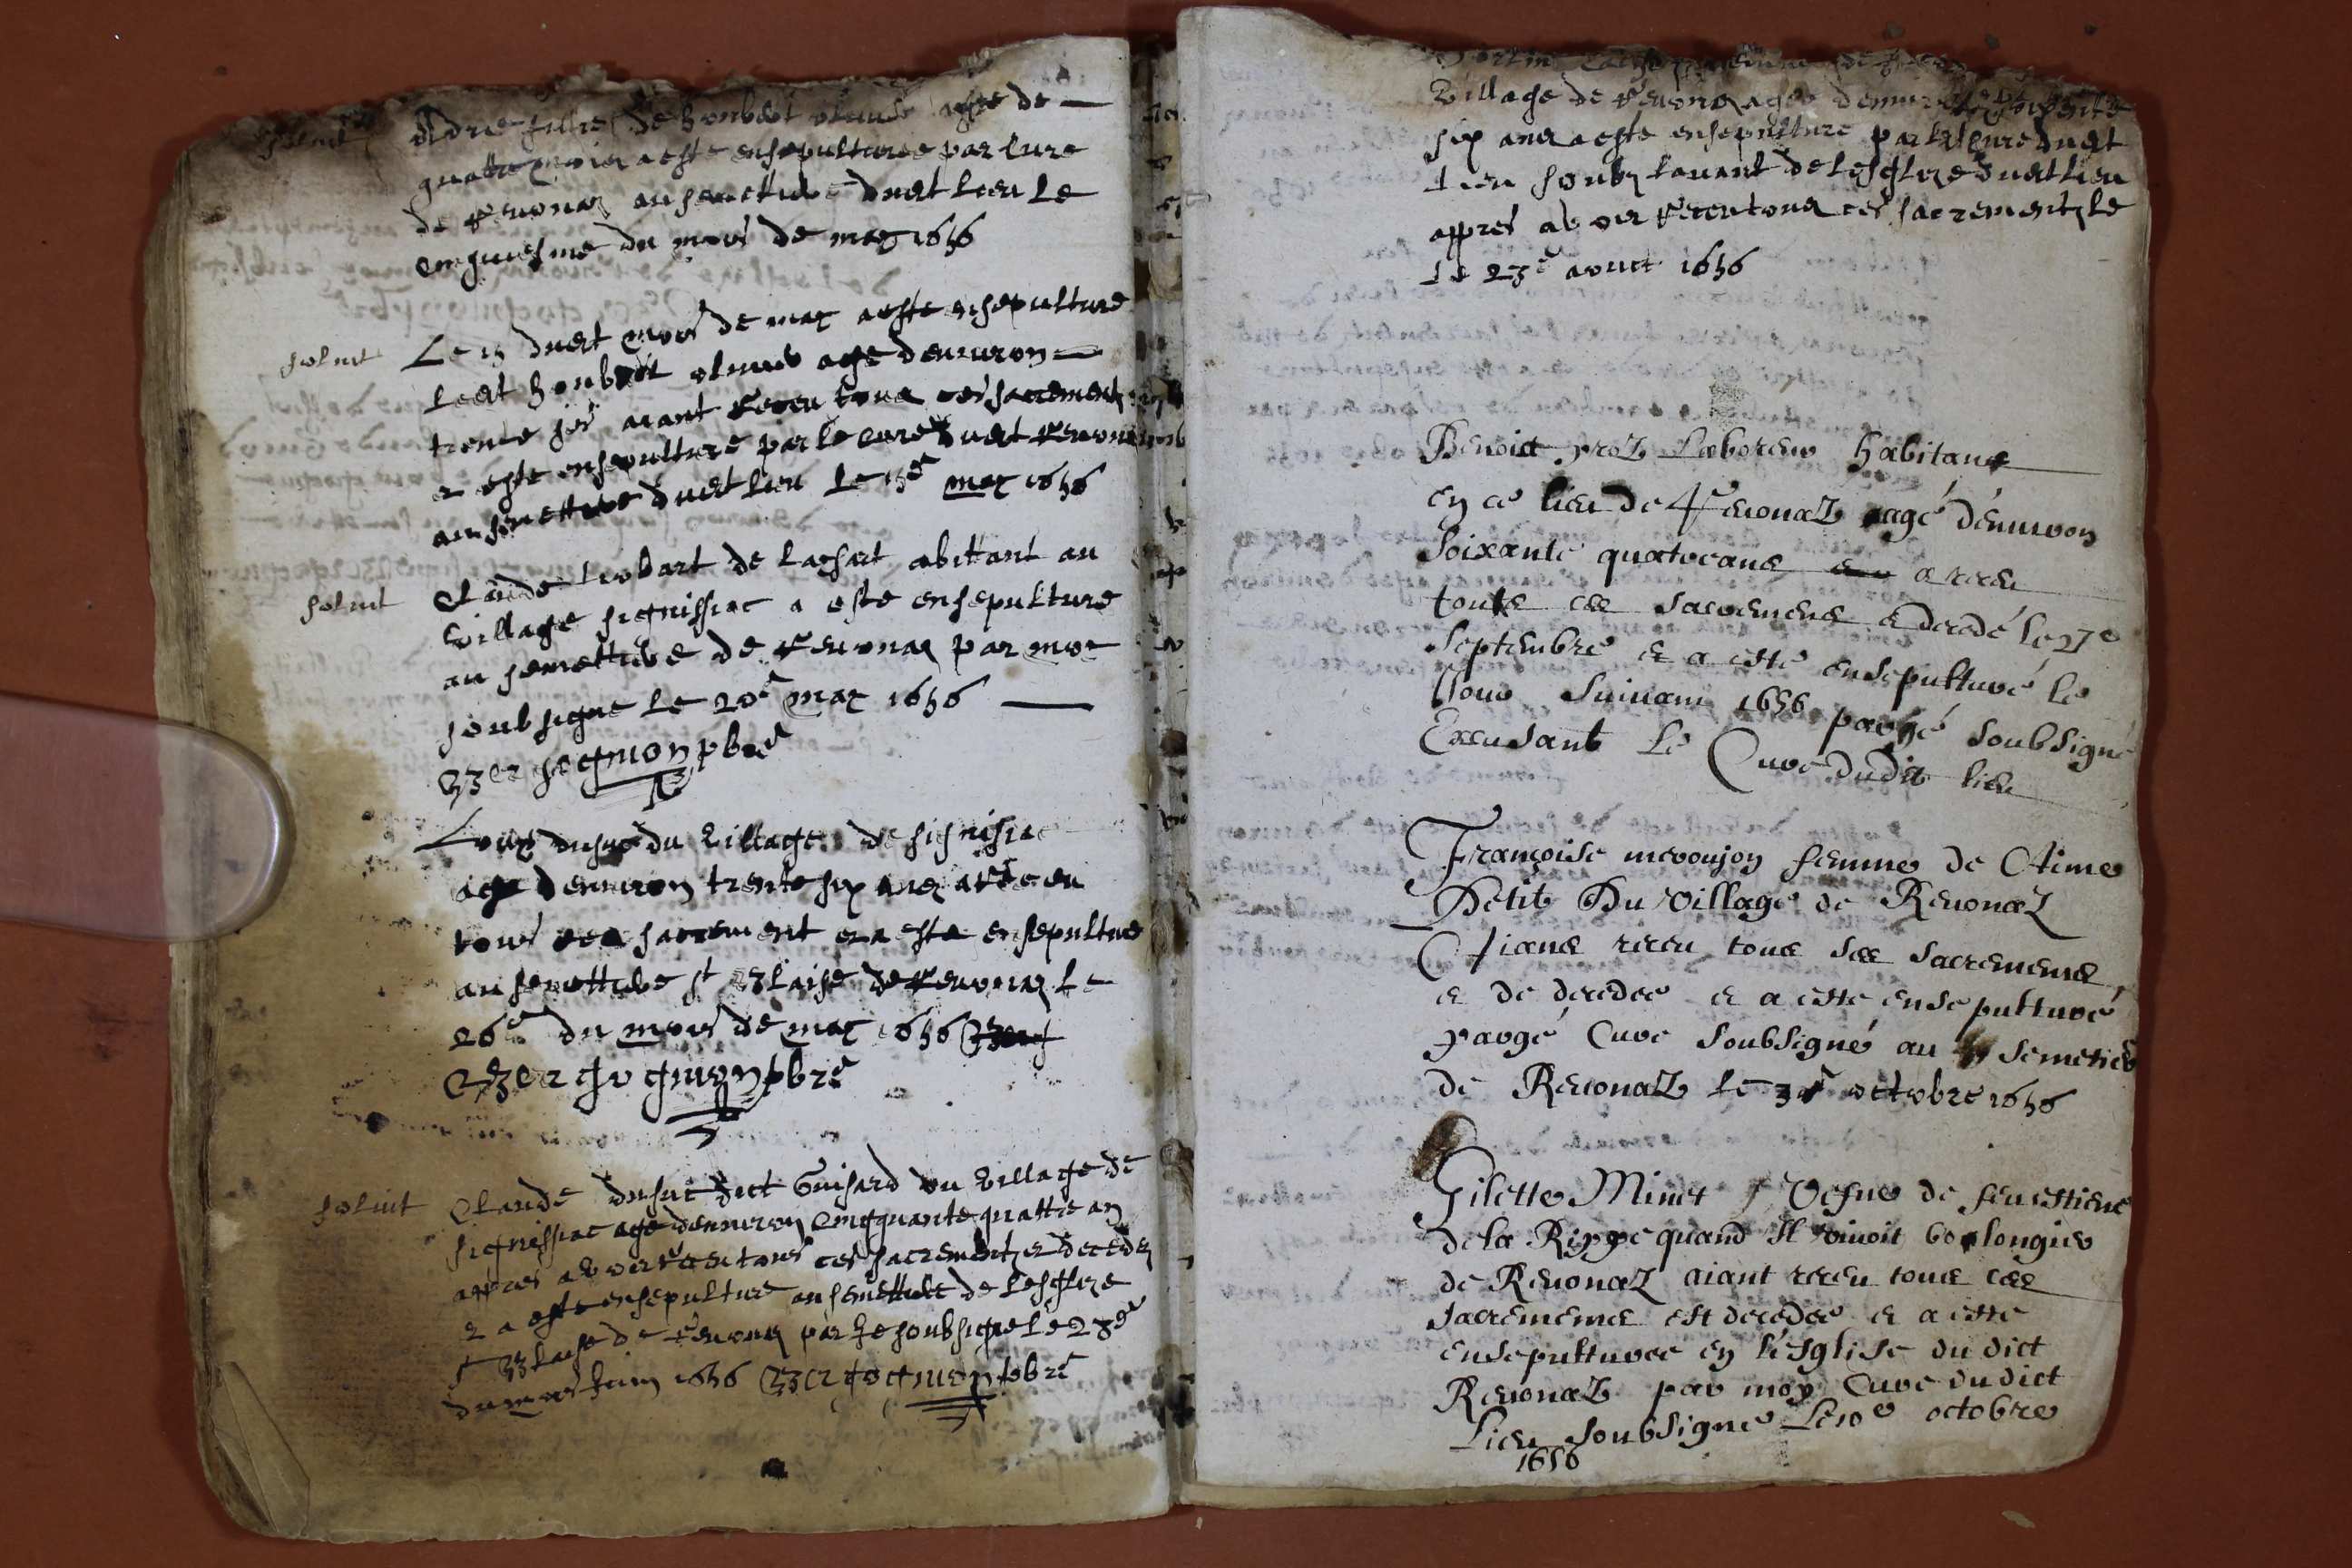 soluit
fille de honbert oliuie agee de
quattre mois a este ensepulturee par Cure
de Reuonas au semettiere dudt lieu le
cinquiesme du mois de may 1656
soluit
Le 15 dudt mois de may a este ensepulture
ledt honbert oliuier age denuiron
trente sis aiant Receu tous ces sacrements
e este ensepulture par le cure dudt Reuonas
au semettiere dudt lieu le 15e may 1656
soluit
Claude liobart de abittant au
village signissiac a este ensepulture
au semettiere de Reuonas par moy
soubsigne le 20e may 1656
pbre
Louys dusuc du village de signisiac
age denuiron trente six ans a Receu
tous ces sacrement et a este ensepulture
au semettiere st Blaise de Reuonas le
26e du mois de may 1656
pbre
soluit
Claude dusuc dict Guisard du village de
signissiac age denuiron cinquante quattre an
appres avoir Receu tous ces sacrements et decedez
e a este ensepulture au semettiere de lesglize
st Blaise de Reuonas par Je soubsigne le 28e
du mois Juin 1656 pbre
village de Reuonas agee denuiron
six ans a este ensepulture par le cure dudt
lieu soubz lauant de lesglize dudt lieu
appres avoir Receu tous ces sacrementz le
le 23e aouct 1656
Benoict proz laboreur habitant
en ce lieu de Reuonaz aagé d'enuiron
soixante quatorans a receu
touts ces sacremens e decedé le 27e
septembre e a esté ensepulturé le
Jour suiuant 1656 par Jé soubsigné
Excusant le Curé dudit lieu
Françoise meroujon femme de Aime
Petit Du village de Reuonaz
Aiant receu tous ses sacremens
e de decedee e a esté ensepulturé
par gé Cure soubsigné au semetier
de Reuonaz le 3e octobre 1656
Gilette Minet Vefue de feu estiene
de la Rippe quand Il viuoit bolongier
de Reuonaz aiant receu tous ces
sacremens est decedee e a esté
ensepulturee en l'esglise du dict
Reuonaz par moy Cure du dict
Lieu soubsigné Le 10e octobre
1656